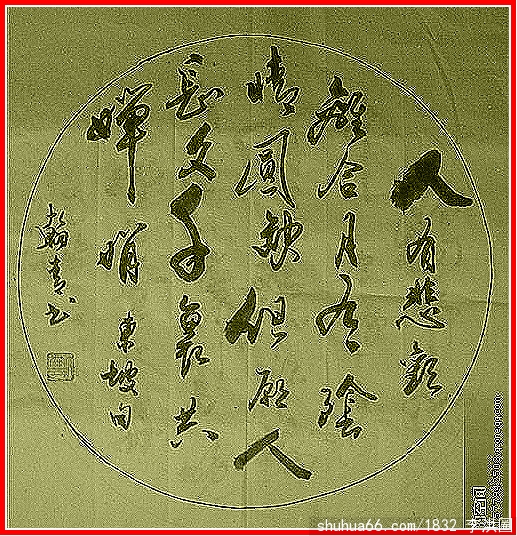 人有悲歡
離合月有陰
晴圓缺但願人
長久千裏共
嬋娟 東坡句
翰青书
shuhua66.com/1832 李洪